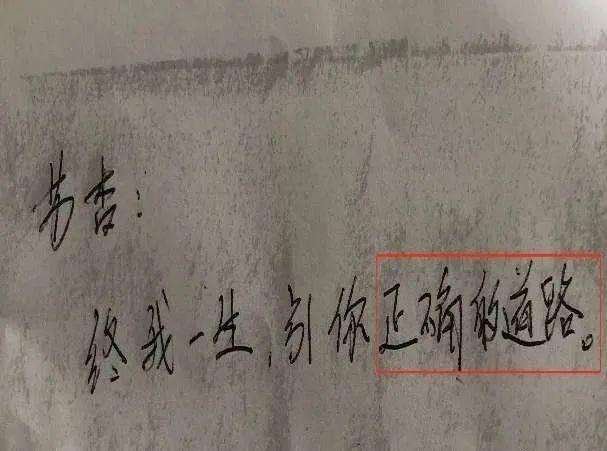 芳杏：
终我一生，引你正确的道路。